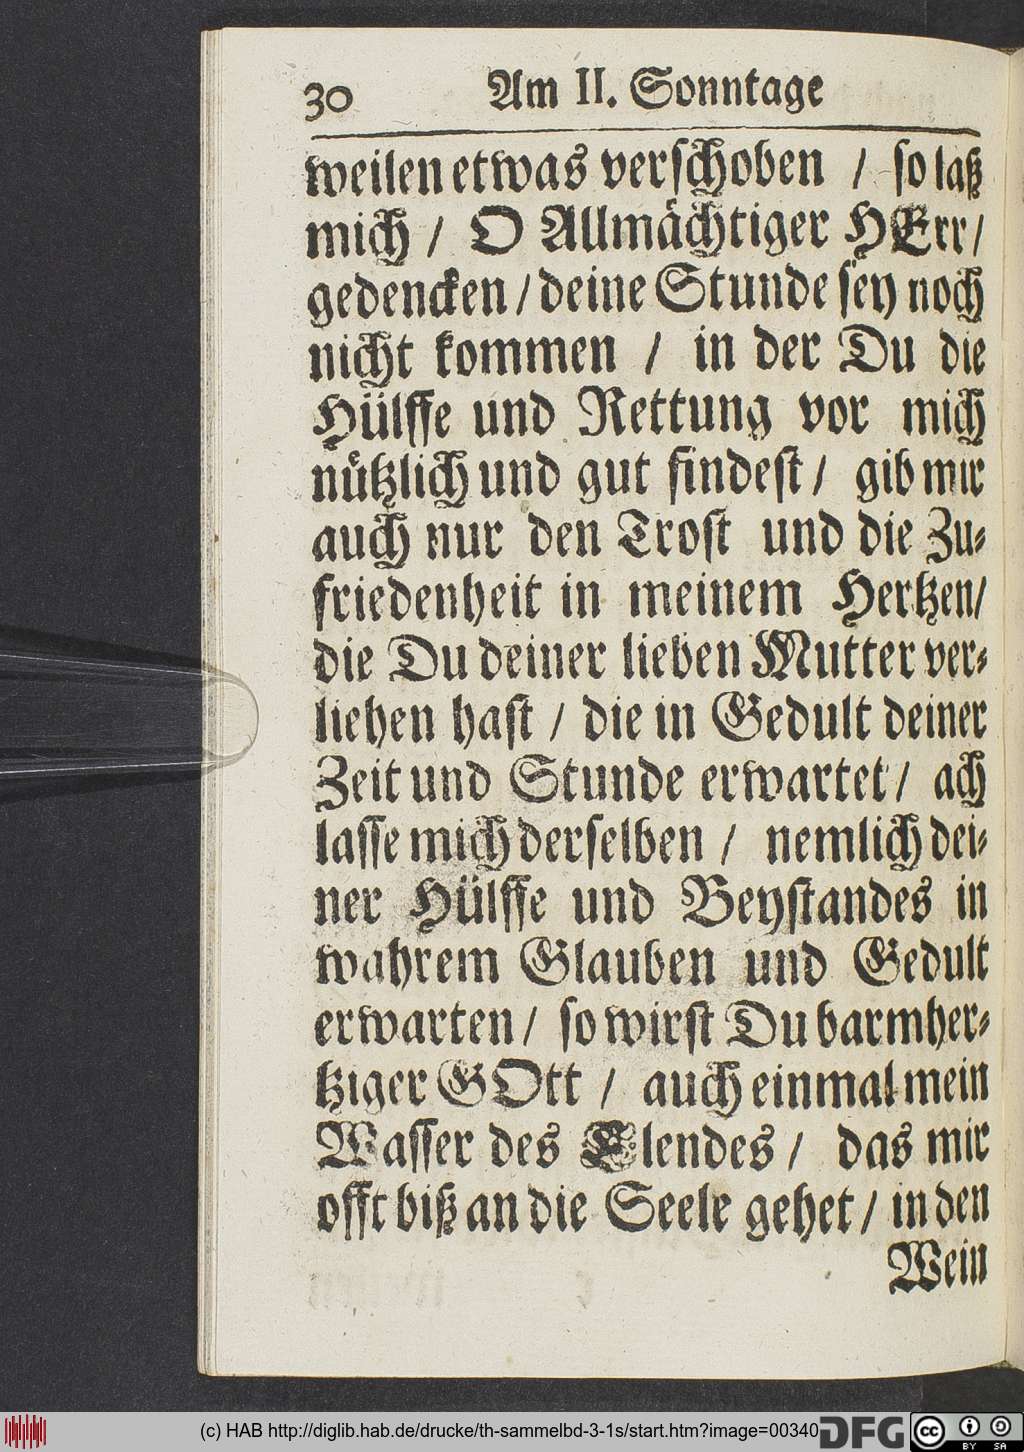 30 Am II. Sonntage
weilen etwas verschoben / so laß
mich / O Allmächtiger HErr /
gedencken / deine Stunde sey noch
nicht kommen / in der Du die
Hülffe und Rettung vor mich
nützlich und gut findest / gib mir
auch nur den Trost und die Zu-
friedenheit in meinem Hertzen /
die Du deiner lieben Mutter ver-
liehen hast / die in Gedult deiner
Zeit und Stunde erwartet / ach
lasse mich derselben / nemlich dei-
ner Hülffe und Beystandes in
wahrem Glauben und Gedult
erwarten / so wirst Du barmher-
tziger GOtt / auch einmal mein
Wasser des Elendes / das mir
offt biß an die Seele gehet / in den
Wein
(c) HAB http://diglib.hab.de/drucke/th-sammelbd-3-1s/start.htm?image=00340
DFG
cc BY SA